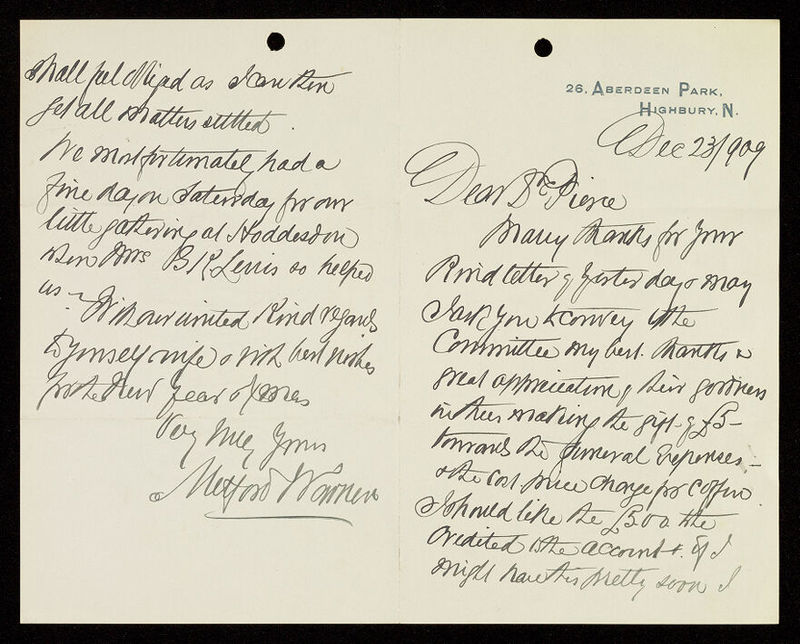 26, ABERDEEN PARK,
HIGHBURY, N.
Dec 23/909
Dear Dr Pierce
Many thanks for your
kind letter of yesterday & may
I ask you to convey to the
Committee my best thanks &
great appreciation of their goodness
in thus making the gift of £5-
towards the funeral expenses -
& the cost price charge for coffin
I should like the £5
credited to the account & if I
might have this pretty soon I
shall feel obliged as I can then
get all matters settled.
We most fortunately had a
fine day on Saturday for our
little gathering at Hoddesdon
when Mrs B K Lewis so helped
us - With our united kind regards
to yourself wife & with best wishes
for the New Year & Xmas
Very truly yours
Metford Warner